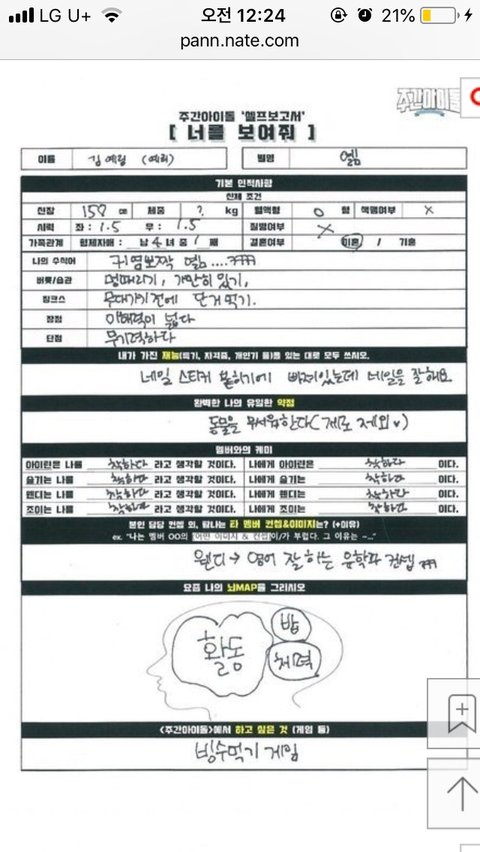 LG U+ 오전 12:24 21%
pann.nate.com
주간아이돌
주간아이돌 '셀프보고서'
[ 너를 보여줘 ]
이름 김예림 (예리) 별명 옐
기본 인적사항
신체 조건
신장 158 cm 체중 ? kg 혈액형 O 형 색맹여부 X
시력 좌 : 1.5 우 : 1.5 질병여부 X
가족관계 형제자매 : 남 녀 4 중 1 째 결혼여부 미혼 / 기혼
나의 수식어 귀염뽀짝 옐.... ㅋㅋㅋ
버릇/습관 멍때리기, 가만히 있기,
징크스 무대가기 전에 단거 먹기.
장점 이해력이 넓다
단점 무기력하다
내가 가진 재능(특기, 자격증, 개인기 등)을 있는 대로 모두 쓰시오.
네일 스티커 붙이기에 빠져있는데 네일을 잘해요
완벽한 나의 유일한 약점
동물을 무서워한다( 제로 제외♥)
멤버와의 케미
아이린은 나를 착하다 라고 생각할 것이다. 나에게 아이린은 착하다 이다.
슬기는 나를 착하다 라고 생각할 것이다. 나에게 슬기는 착하다 이다.
웬디는 나를 착하다 라고 생각할 것이다. 나에게 웬디는 착하다 이다.
조이는 나를 착하다 라고 생각할 것이다. 나에게 조이는 착하다 이다.
본인 담당 컨셉 외, 탐나는 타 멤버 컨셉&이미지는? (+이유)
ex. "나는 멤버 OO의 [어떤 이미지 & 컨셉]이/가 부럽다. 그 이유는 ~..."
웬디 → 영어 잘하는 유학파 컨셉 ㅋㅋㅋ
요즘 나의 뇌MAP을 그리시오
활동
밥
체력
<주간아이돌>에서 하고 싶은 것 (게임 등)
빙수먹기 게임